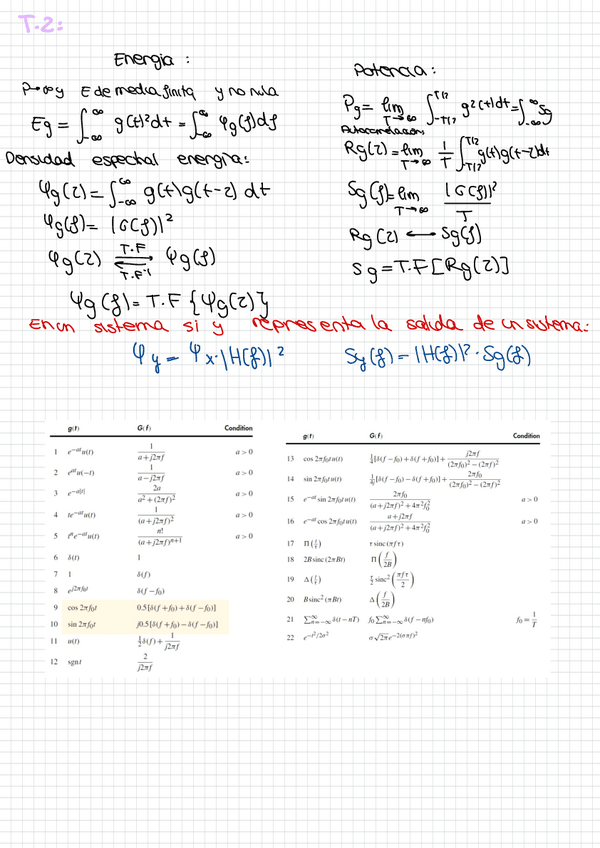 T-2:
Energia :
P→∞ y E de media finita y no nula
Eg = ∫_{-∞}^{∞} g(t)²dt = ∫_{-∞}^{∞} Ψg(f)df
Densidad espectral energia:
Ψg(z) = ∫_{-∞}^{∞} g(t)g(t-z) dt
Ψg(f) = |G(f)|²
Ψg(z) ⇄ Ψg(f)
T.F
T.F⁻¹
Ψg(f) = T.F {Ψg(z)}
Potencia :
Pg = lim_{T→∞} ∫_{-T/2}^{T/2} g²(t)dt = ∫_{-∞}^{∞} Sg
Autocorrelacion
Rg(z) = lim_{T→∞} 1/T ∫_{T/2}^{T/2} g(t)g(t-z)dt
Sg(f) = lim_{T→∞} |G(f)|²/T
Rg(z) ⟷ Sg(f)
Sg = T.F [Rg(z)]
En un sistema si y representa la salida de un sistema:
Ψy = Ψx·|H(f)|² Sy(f) = |H(f)|²·Sg(f)
g(t) G(f) Condition
1 e^{-at}u(t) 1/(a+j2πf) a > 0
2 e^{at}u(-t) 1/(a-j2πf) a > 0
3 e^{-a|t|} 2a/(a²+(2πf)²) a > 0
4 te^{-at}u(t) 1/(a+j2πf)² a > 0
5 tⁿe^{-at}u(t) n!/(a+j2πf)^{n+1} a > 0
6 δ(t) 1
7 1 δ(f)
8 e^{j2πf₀t} δ(f-f₀)
9 cos 2πf₀t 0.5[δ(f+f₀)+δ(f-f₀)]
10 sin 2πf₀t j0.5[δ(f+f₀)-δ(f-f₀)]
11 u(t) ½δ(f)+1/(j2πf)
12 sgn t 2/(j2πf)
g(t) G(f) Condition
13 cos 2πf₀t u(t) ¼[δ(f-f₀)+δ(f+f₀)]+j2πf/((2πf₀)²-(2πf)²)
14 sin 2πf₀t u(t) 1/4j[δ(f-f₀)-δ(f+f₀)]+2πf₀/((2πf₀)²-(2πf)²)
15 e^{-at} sin 2πf₀t u(t) 2πf₀/((a+j2πf)²+4π²f₀²) a > 0
16 e^{-at} cos 2πf₀t u(t) (a+j2πf)/((a+j2πf)²+4π²f₀²) a > 0
17 Π(t/τ) τ sinc(πfτ)
18 2B sinc(2πBt) Π(f/2B)
19 Δ(t/τ) τ/2 sinc²(πfτ/2)
20 B sinc²(πBt) Δ(f/2B)
21 ∑_{n=-∞}^{∞} δ(t-nT) f₀∑_{n=-∞}^{∞} δ(f-nf₀) f₀ = 1/T
22 e^{-t²/2σ²} σ√2π e^{-2(σπf)²}